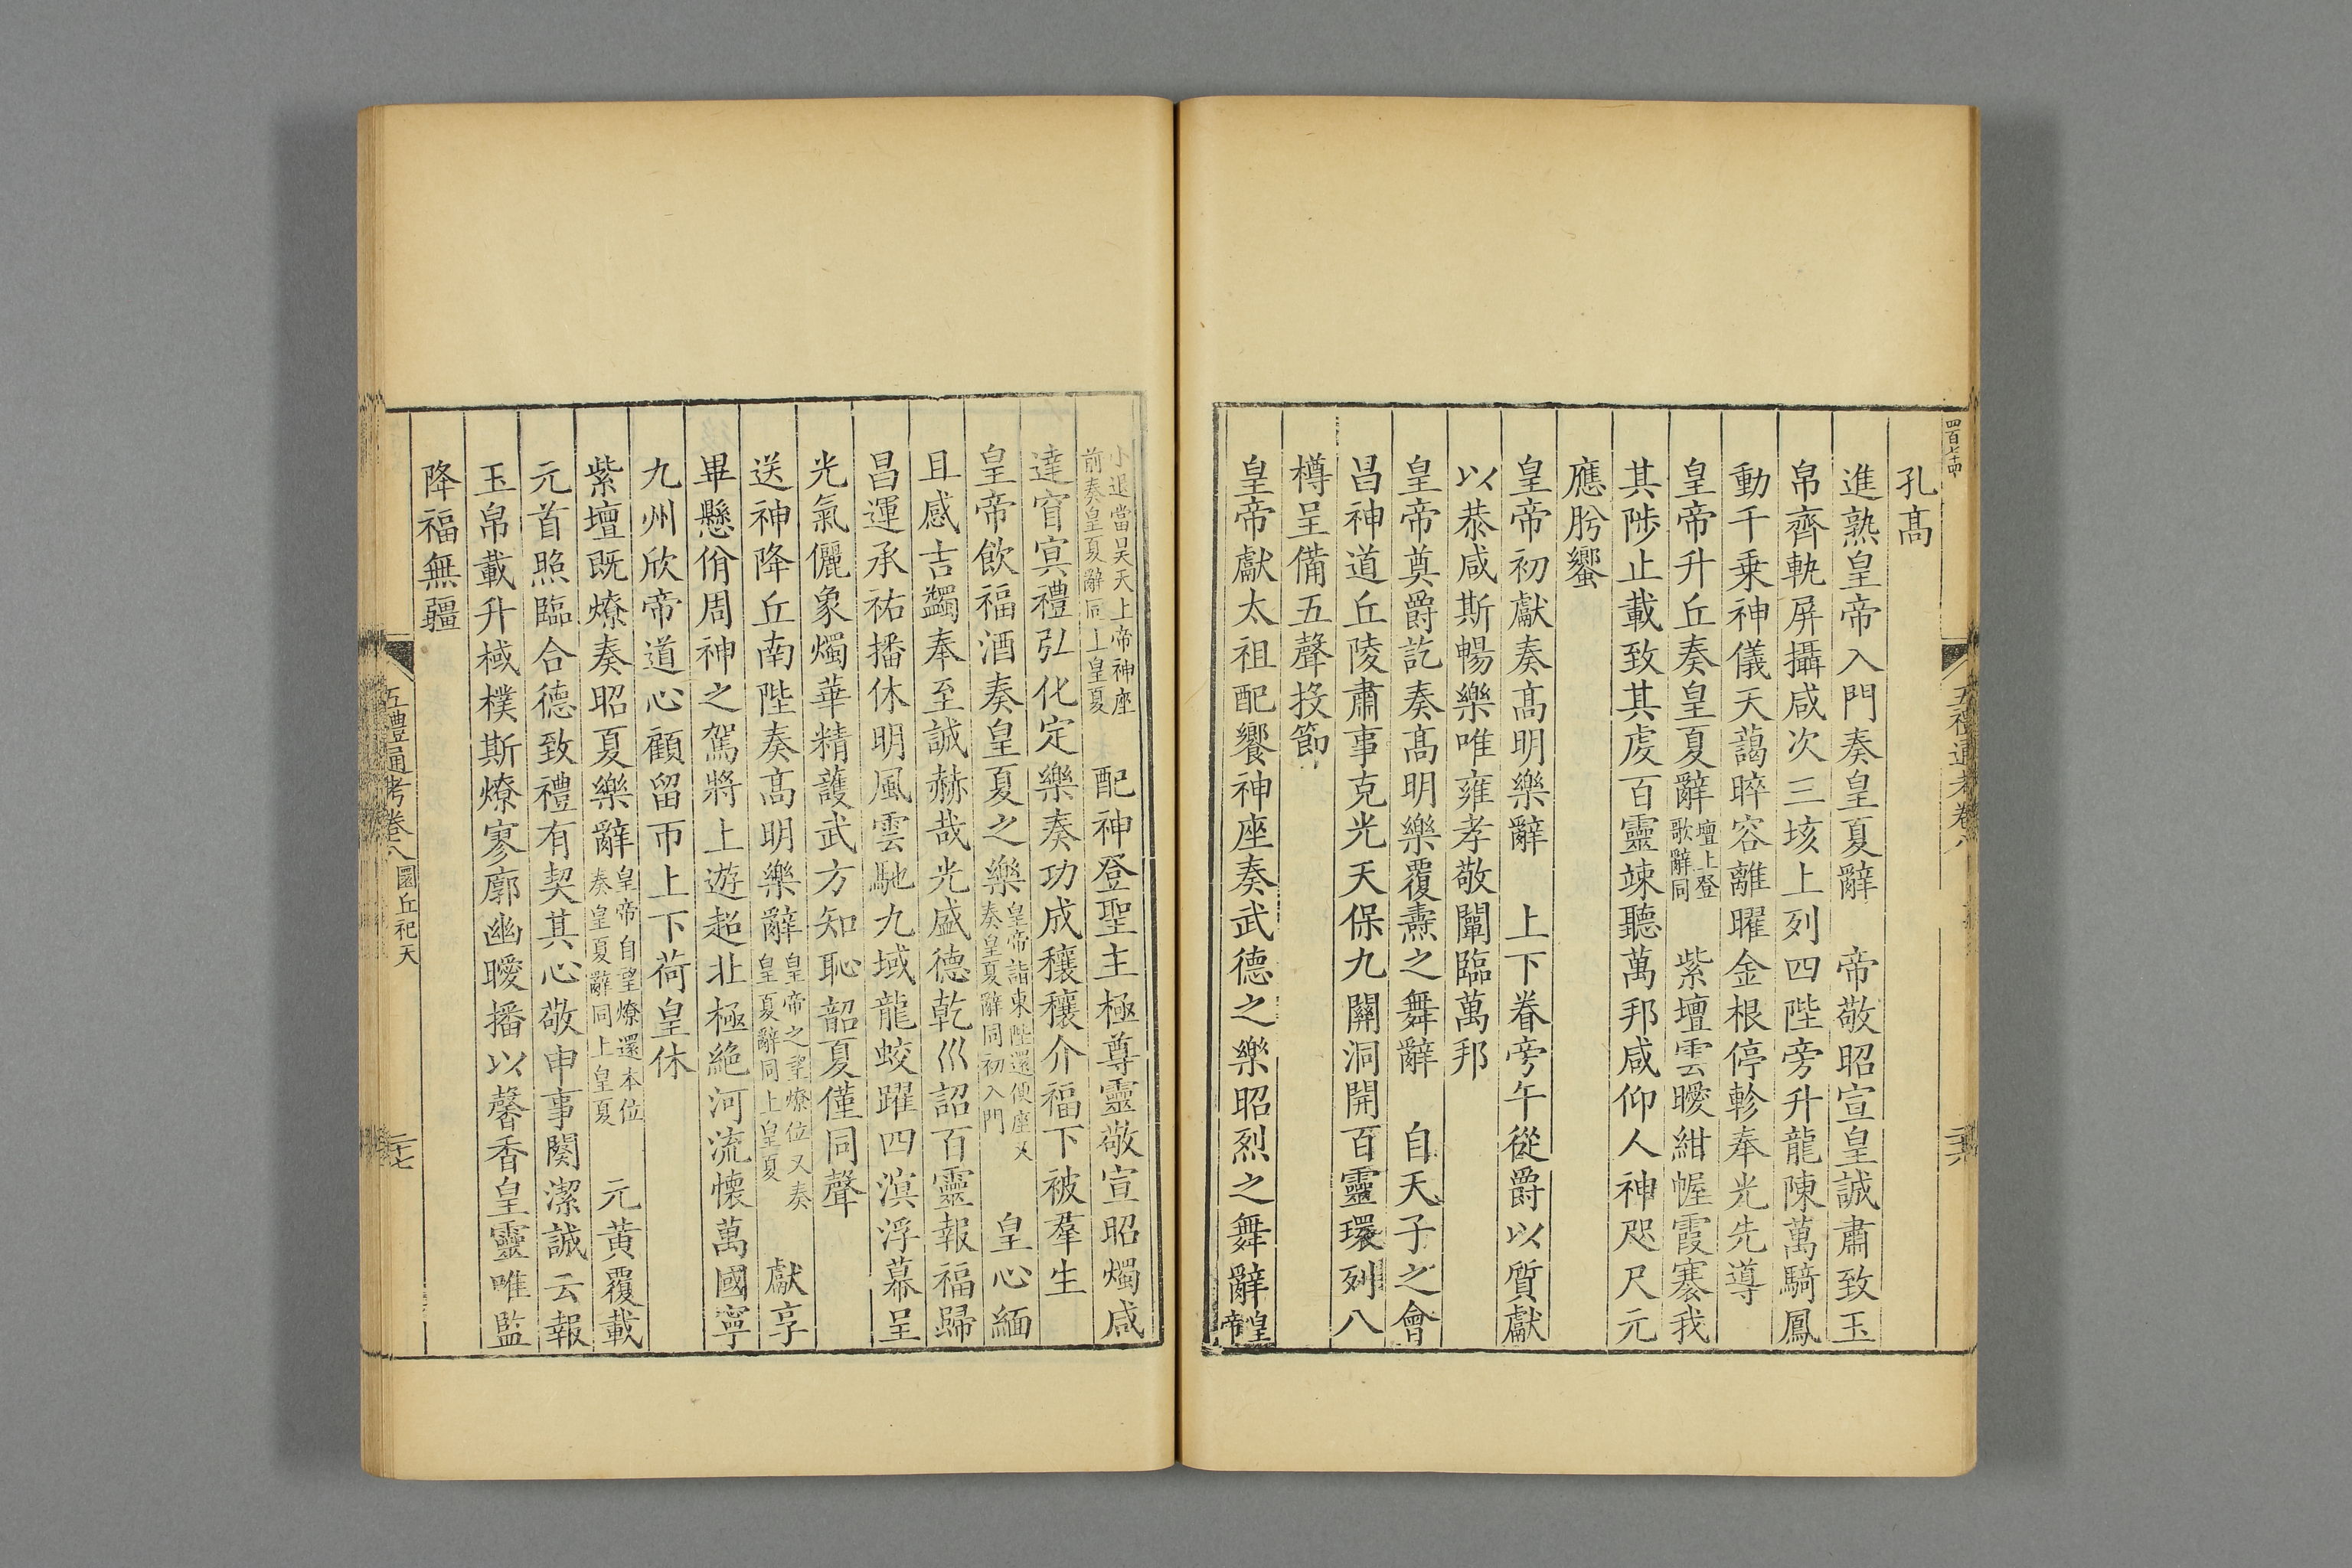 四百七十四
五禮通考卷八
二十六
孔髙
進熟皇帝入門奏皇夏辭　帝敬昭宣皇誠肅致玉
帛齊軌屏攝咸次三垓上列四陛旁升龍陳萬騎鳳
動千乗神儀天藹晬容離曜金根停軫奉光先導
皇帝升丘奏皇夏辭壇上登歌辭同　紫壇雲曖紺幄霞褰我
其陟止載致其虔百靈竦聽萬邦咸仰人神咫尺元
應肹蠁
皇帝初獻奏髙明樂辭　上下眷旁午從爵以質獻
以恭咸斯暢樂唯雍孝敬闡臨萬邦
皇帝奠爵訖奏髙明樂覆燾之舞辭　自天子之會
昌神道丘陵肅事克光天保九關洞開百靈環列八
樽呈備五聲投節
皇帝獻太祖配饗神座奏武德之樂昭烈之舞辭皇帝
小退當昊天上帝神座前奏皇夏辭同上皇夏　配神登聖主極尊靈敬宣昭燭咸
達窅冥禮弘化定樂奏功成穰穰介福下被羣生
皇帝飲福酒奏皇夏之樂皇帝詣東陛還便座又奏皇夏辭同初入門　皇心緬
且感吉蠲奉至誠赫哉光盛德乾巛詔百靈報福歸
昌運承祐播休明風雲馳九域龍蛟躍四溟浮幕呈
光氣儷象燭華精護武方知恥韶夏僅同聲
送神降丘南陛奏髙明樂辭皇帝之望燎位又奏皇夏辭同上皇夏　獻享
畢懸佾周神之駕將上遊超北極絶河流懷萬國寧
九州欣帝道心顧留帀上下荷皇休
紫壇既燎奏昭夏樂辭皇帝自望燎還本位奏皇夏辭同上皇夏　元黃覆載
元首照臨合德致禮有契其心敬申事闋潔誠云報
玉帛載升棫樸斯燎寥廓幽曖播以馨香皇靈唯監
降福無疆
五禮通考卷八　圜丘祀天
二十七